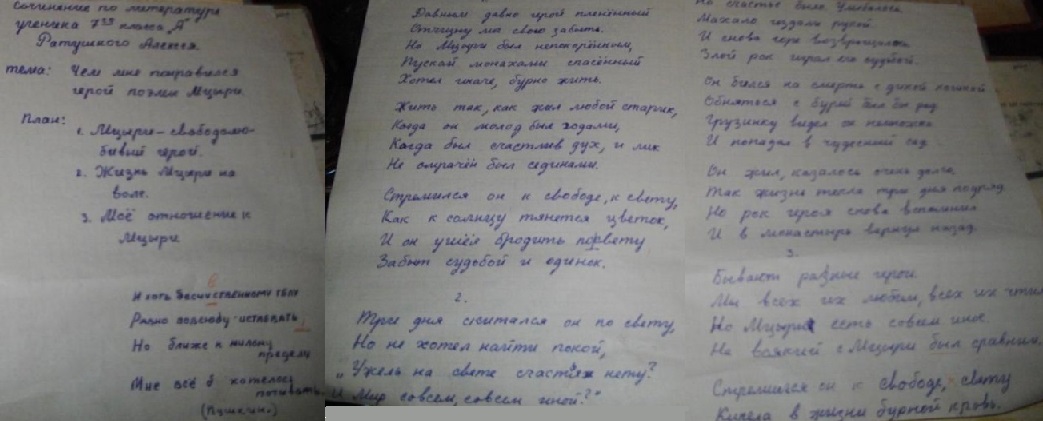 Сочинение по литературе
ученика 7го класса „А"
Ратушного Алексея
тема: Чем мне понравился
герой поэмы Мцыри.
План:
1. Мцыри – свободолю-
бивый герой.
2. Жизнь Мцыри на
воле.
3. Моё отношение к
Мцыри
И хоть бесчувственному телу
Равно повсюду истлевать,
Но ближе к милому
пределу
Мне всё б хотелось
почивать.
(Пушкин)
Давным давно герой пленённый
Отчизну мог свою забыть.
Но Мцыри был непокорённым,
Пускай монахами спасённый
Хотел иначе, бурно жить.
Жить так, как жил любой старик,
Когда он молод был годами,
Когда был счастлив дух, и лик
Не омрачён был сединами.
Стремился он к свободе, к свету,
Как к солнцу тянется цветок,
И он ушёл бродить по свету
Забыт судьбой и одинок.
2.
Три дня скитался он по свету,
Но не хотел найти покой,
„Ужель на свете счастья нету?
И Мир совсем, совсем иной?"
Но счастье было
Махало рукой.
И снова горе возвращалось
Злой рок играл его судьбой.
Он бился на смерть с дикой кошкой
Обняться с бурей был бы рад
Грузинку видел он немножко
И попадал в чудесный сад
Он жил, казалось очень долго,
Так жизнь текла три дня подряд
Но рок героя снова
И в монастырь вернул назад.
3.
Бывают разные герои.
Мы всех их любим, всех их чтим
Но Мцыри есть совсем иное.
Не всякий с Мцыри был сравним.
Стремился он к свободе, свету
Кипела в жизни бурной кровь.